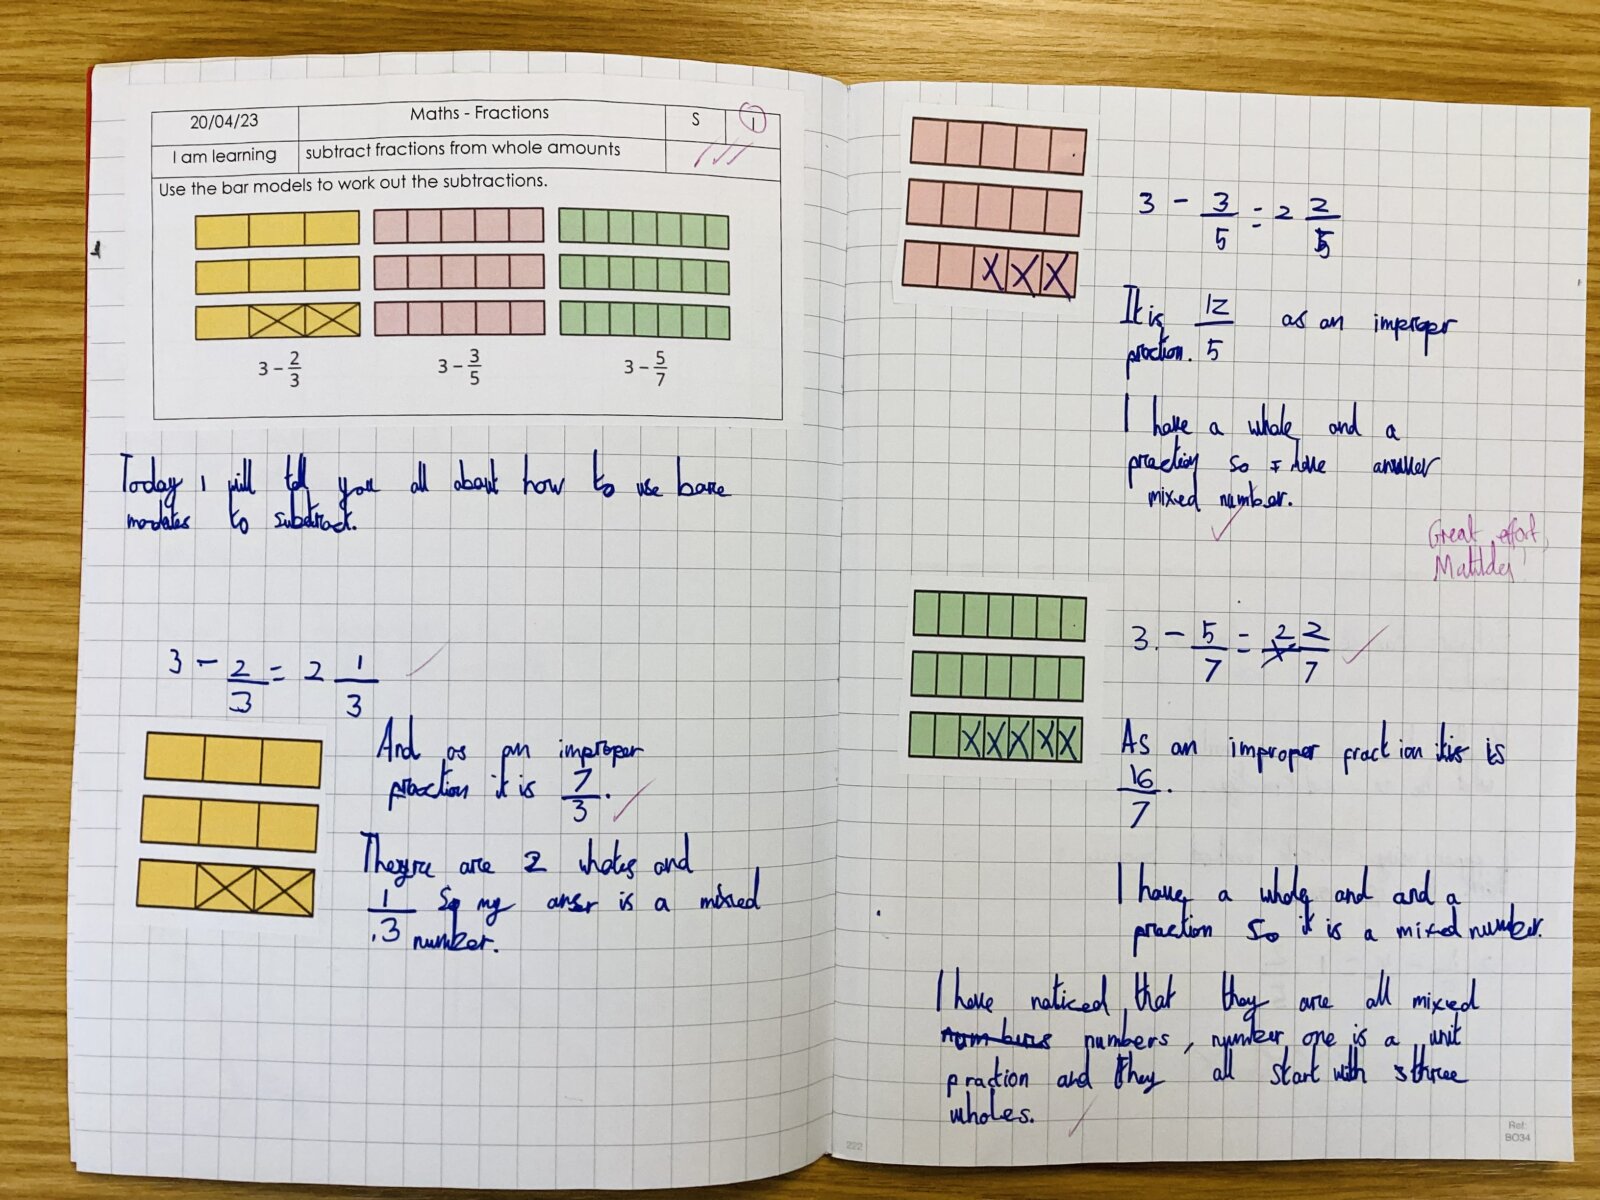 20/04/23 Maths - Fractions S I
I am learning subtract fractions from whole amounts
Use the bar models to work out the subtractions.
3 - 2/3 3 - 3/5 3 - 5/7
Today I will tell you all about how to use bare
modates to subtract.
3 - 2/3 = 2 1/3
And as an improper
fraction it is 7/3.
They're are 2 wholes and
1/3 So my anser is a mixed
number.
3 - 3/5 = 2 2/5
It is 12/5 as an improper
fraction.
I have a whole and a
fraction so I have
mixed number.
Great effort,
Matilda
3. - 5/7 = 2 2/7
As an improper fraction is
16/7.
I have a whole and and a
fraction so it is a mixed number.
I have noticed that they are all mixed
numbers numbers, number one is a unit
fraction and they all start with three
wholes.
222
Ref:
BO34